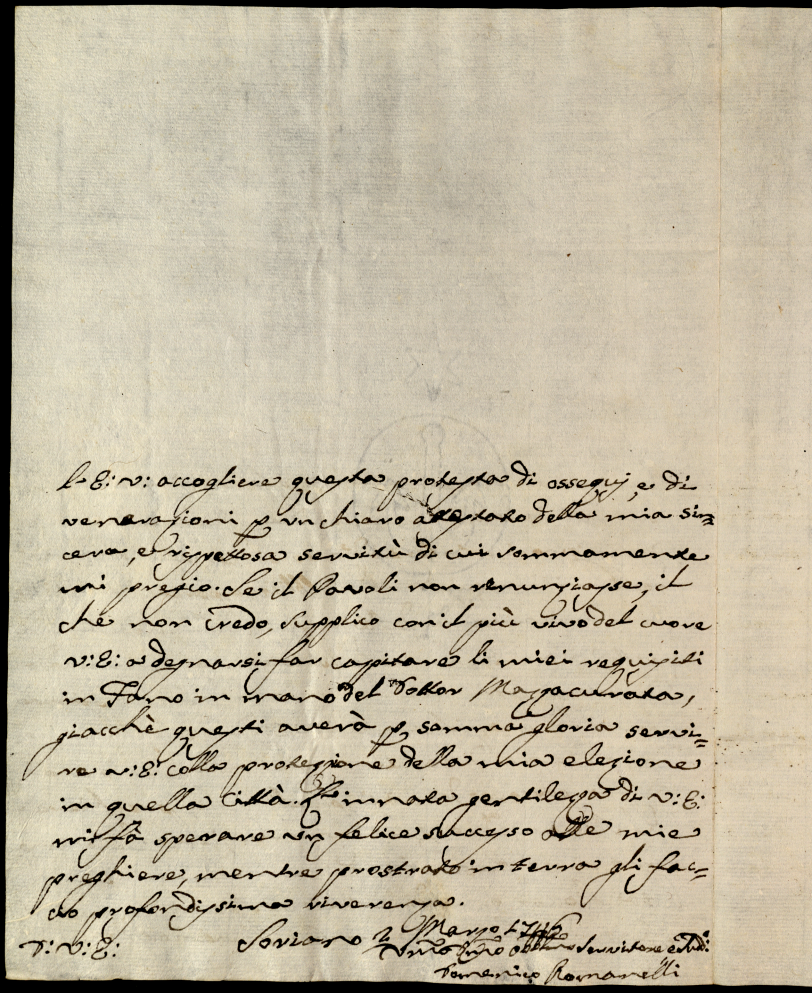 l'E: V: accogliere questa protesta di ossequj, e di
venerazioni p un chiaro attestato della mia sin=
cera, e rispettosa servitù di cui sommamente
mi pregio. Se il Pavoli non renunziasse, il
che non credo, supplico con il più vivo del cuore
V: E: a degnarsi far capitare li miei requisiti
in Fano in mano del Dottor Mazzacurata,
giacchè questi averà p somma gloria servi=
re V: E: colla protezione della mia elezione
in quella Città. L'innata gentilezza di V: E:
mi fà sperare un felice successo alle mie
preghiere, mentre prostrato in terra gli fac=
cio profondissima riverenza.
D: V: E: Soriano 2 Marzo
Servitore
Domenico Romanelli